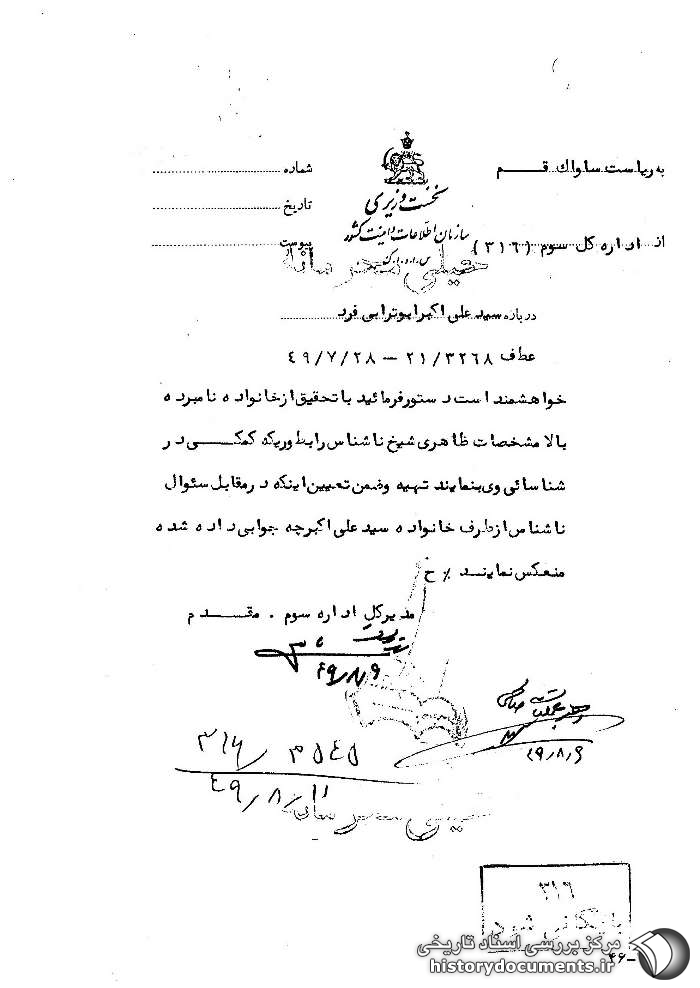 به ریاست ساواک قم
شماره
نخست وزیری
تاریخ
سازمان اطلاعات و امنیت کشور
س.ا.و.ا.ک
از اداره کل سوم (۳۱۶)
پیوست
خیلی محرمانه
درباره سید علی اکبر ابوترابی فرد
عطف ۲۱/۳۲۶۸ – ۴۹/۷/۲۸
خواهشمند است دستور فرمائید با تحقیق از خانواده نامبرده
بالا مشخصات ظاهری شیخ ناشناس را بطوریکه کمکی در
شناسائی وی بنمایند تهیه وضمن تعیین اینکه در مقابل سئوال
ناشناس از طرف خانواده سید علی اکبر چه جوابی داده شده
منعکس نمایند ٪ خ
مدیرکل اداره سوم . مقدم
۴۹/۸/۹
۴۹/۸/۹
۳۱۶/۳۵۴۵
۴۹/۸/۱۱
خیلی محرمانه
۳۱۶
بایگانی شود
مرکز بررسی اسناد تاریخی
historydocuments.ir